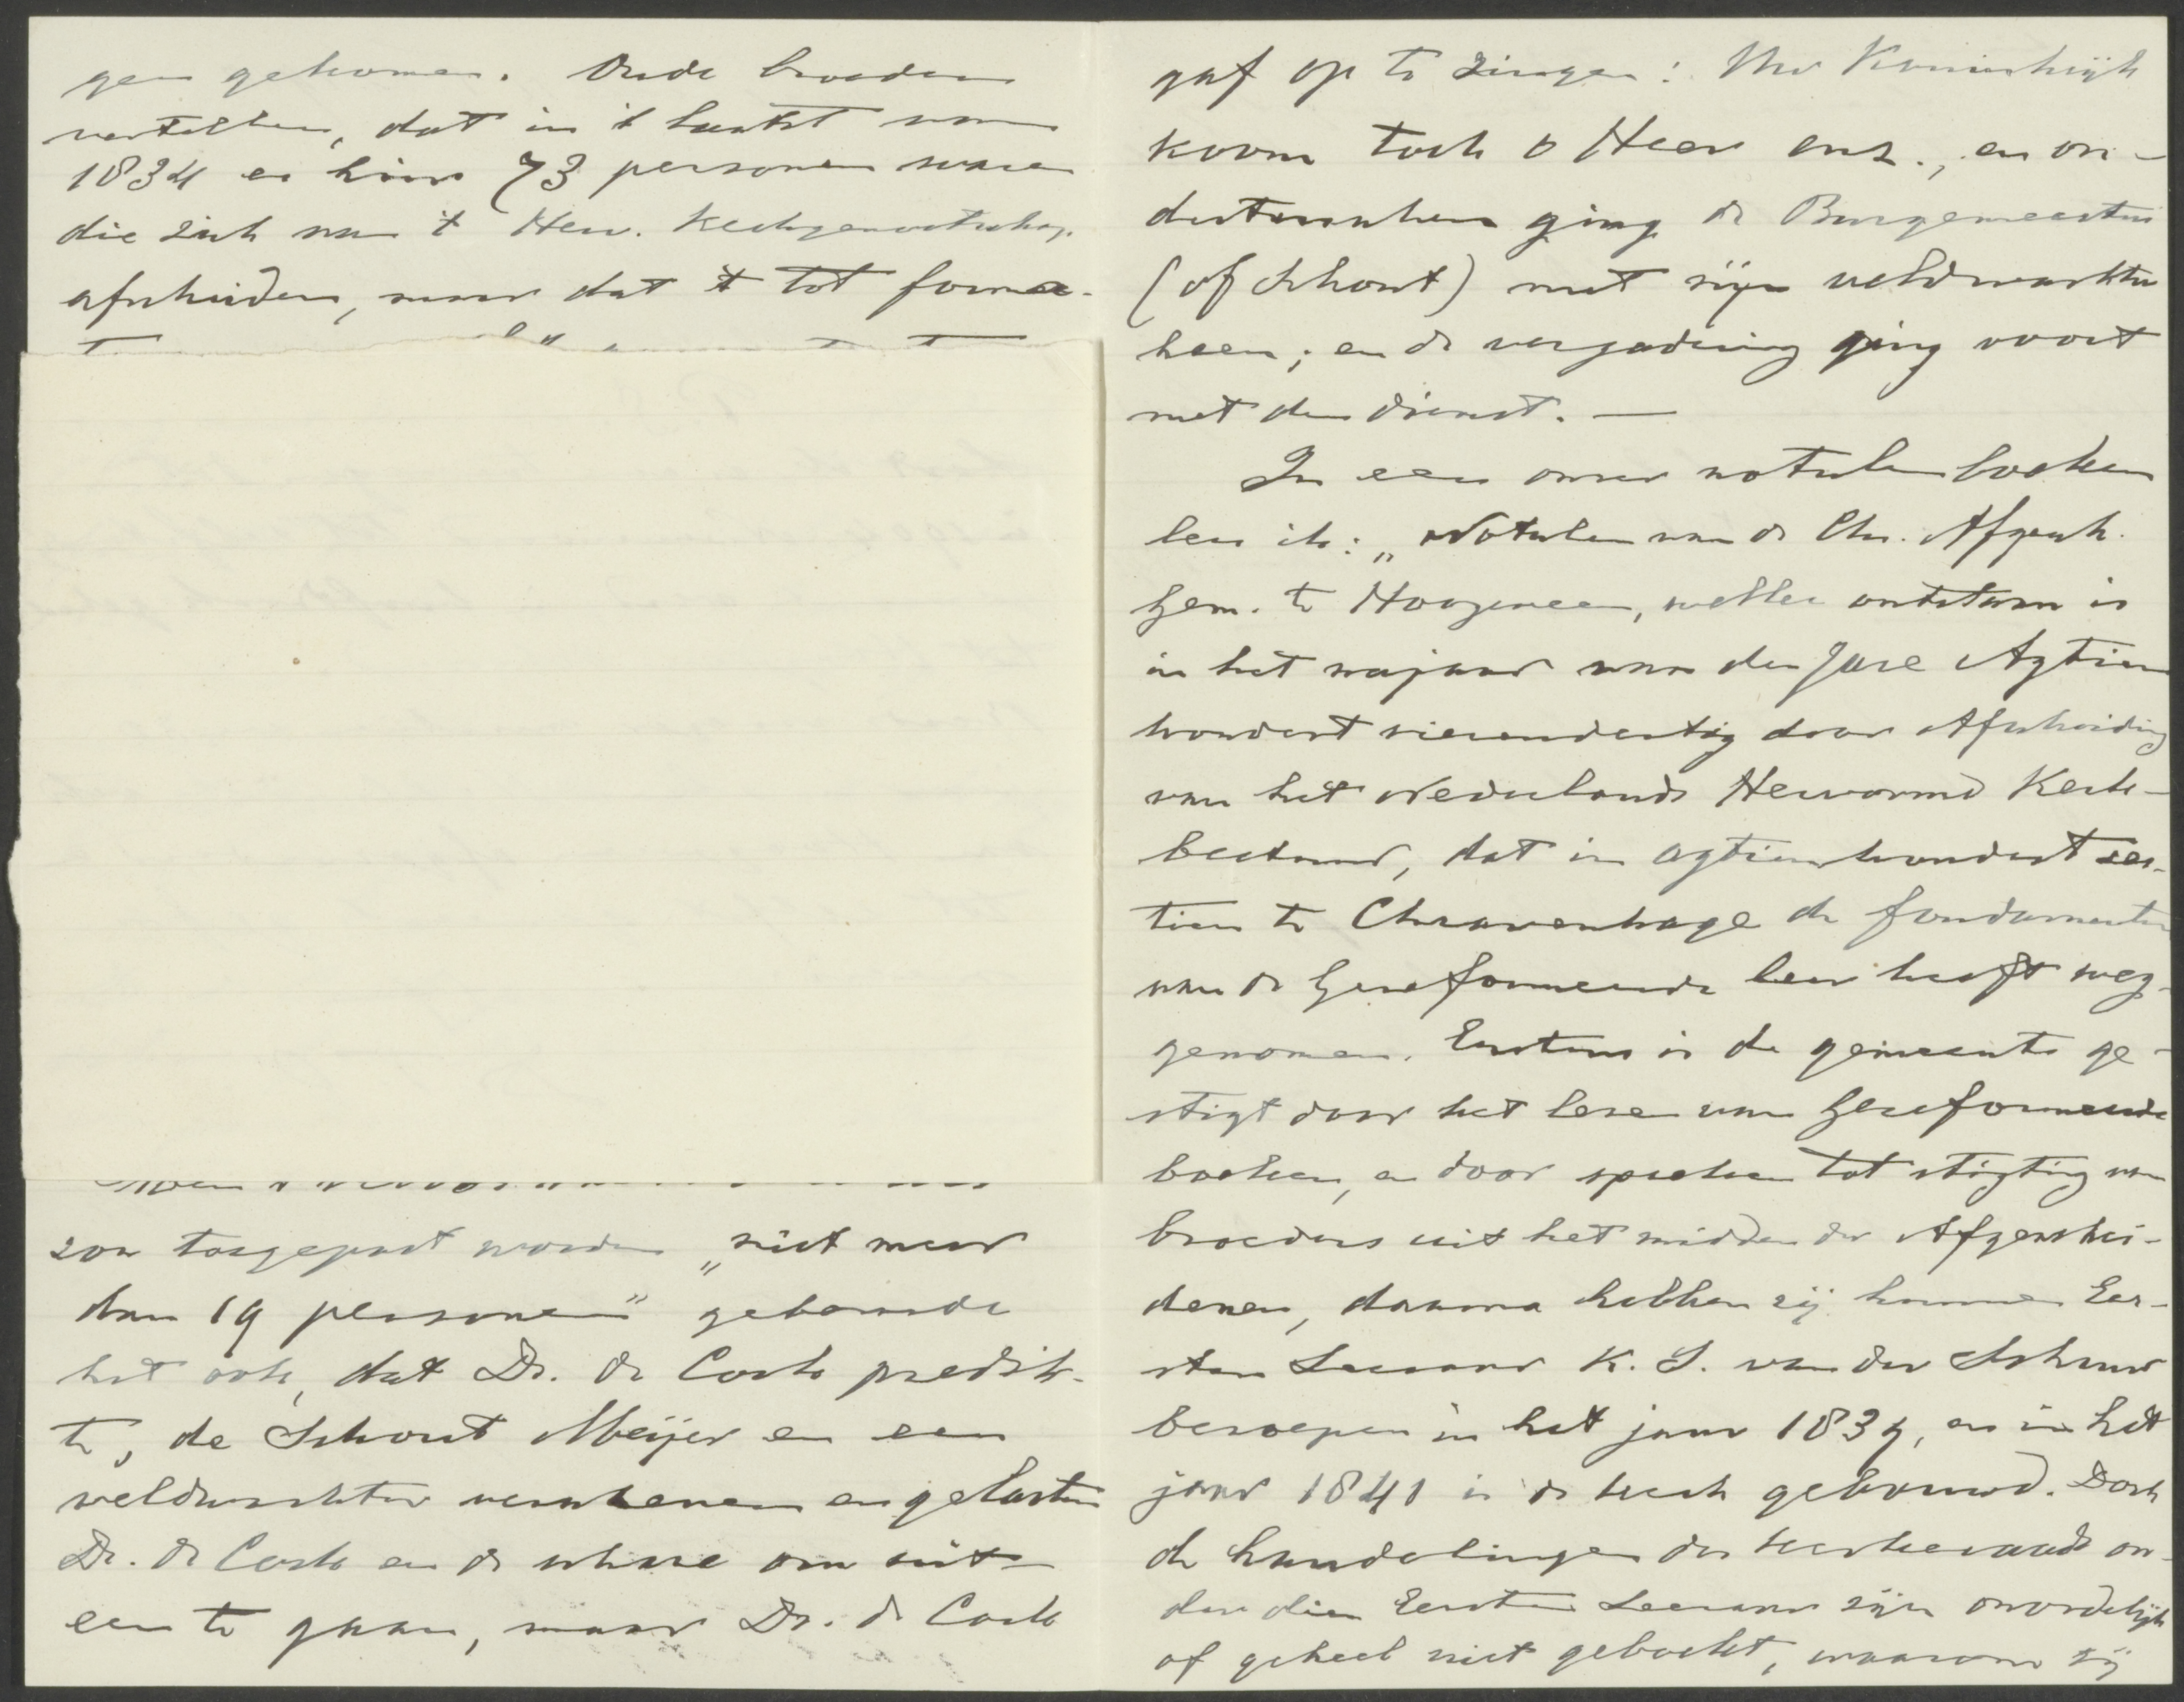 gen gekomen. Oude broeders
vertellen, dat in 't laatst van
1834 er hier 73 personen waren
die zich van 't Herv. Kerkgenootschap
afscheiden, maar dat 't tot forma-
zou toegepast worden „niet meer
dan 19 personen" gebeurde
het ook, dat Ds. de Cock predik-
te, de Schout Meijer en een
veldwachter verschenen en gelasten
Ds. de Cock en de schare om uit-
een te gaan, maar Ds. de Cock
gaf op te zingen: Uw Koninkrijk
koom toch o Heer enz., en on-
dertusschen ging de Burgemeester
(of schout) met zijn veldwachter
heen; en de vergadering ging voort
met den dienst. —
In een onzer notulen boeken
lees ik: „Notulen van de Chr. Afgesch.
Gem. te Hoogeveen, welke ontstaan is
in het najaar van den Jare Agtien
hondert vierendertig door Afscheiding
van het Nederlands Hervormd Kerk-
bestuur, dat in agtienhondert zes-
tien te Chravenhage de fondamenten
van de Gereformeerde leer heeft weg-
genomen. Eerstens is de gemeente ge-
stigt door het lezen van Gereformeerde
boeken, en door spreken tot stigting van
broeders uit het midden der Afgeschei-
denen, daarna hebben zij hunnen Eer-
sten Leeraar K. S. van der Schuur
beroepen in het jaar 1839, en in het
jaar 1841 is de kerk gebouwd. Doch
de handelingen des kerkeraads on-
der dien Eersten Leeraar zijn onordelijk
of geheel niet geboekt, waarom zij